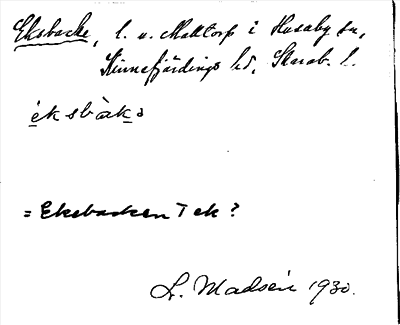 Eksbacke, l. u. Malltorp i Husaby sn,
Kinnefjärdings hd, Skarab. l.
éksbàkə
= Eksbacken Tek?
L. Madsén 1930.